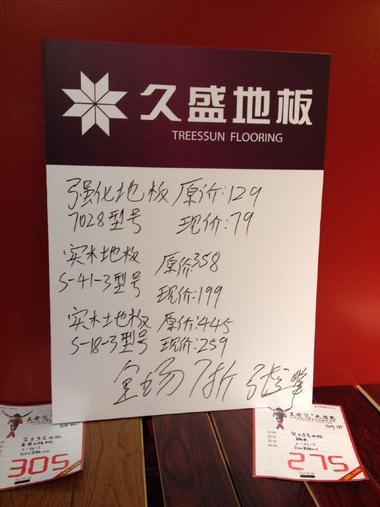 久盛地板
TREESSUN FLOORING
强化地板 原价:129
7028型号 现价:79
实木地板 原价:358
S-41-3型号 现价:199
实木地板 原价:445
S-18-3型号 现价:259
全场7折
305
275